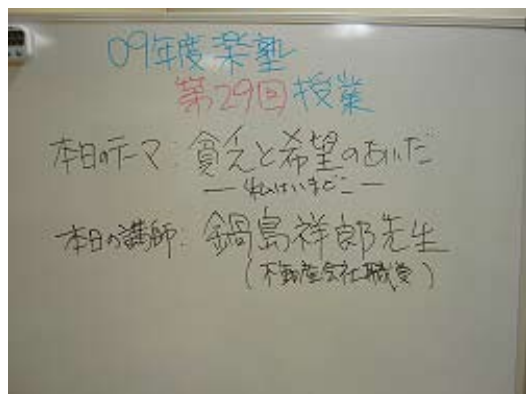 09年度楽塾
第29回授業
本日のテーマ:貧乏と希望のあいだ
―私はいまどこ―
本日の講師:鍋島祥郎先生
(不動産会社職員)